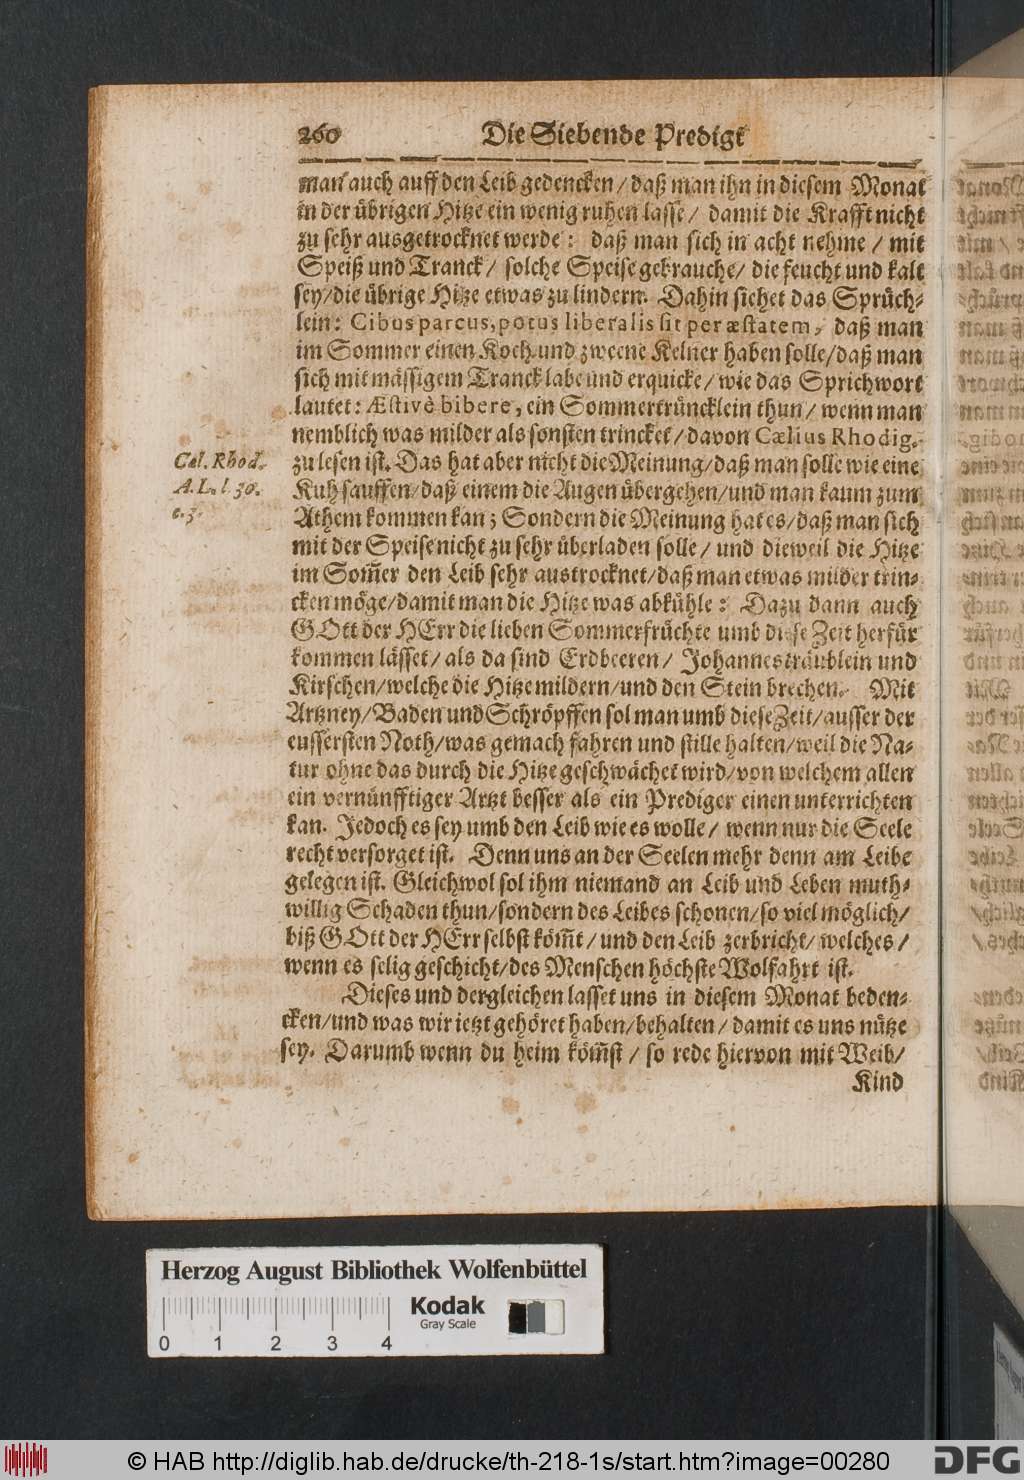 260 Die Siebende Predigt
man auch auff den Leib gedencken / daß man ihn in diesem Monat
in der übrigen Hitze ein wenig ruhen lasse / damit die Krafft nicht
zu sehr ausgetrocknet werde: daß man sich in acht nehme / mit
Speiß und Tranck / solche Speise gebrauche / die feucht und kalt
sey / die übrige Hitze etwas zu lindern. Dahin siehet das Sprüch-
lein: Cibus parcus, potus liberalis sit per æstatem, daß man
im Sommer einen Koch und zweene Kelner haben solle / daß man
sich mit mässigem Tranck labe und erquicke / wie das Sprichwort
lautet: Æstivè bibere, ein Sommertrüncklein thun / wenn man
nemblich was milder als sonsten trincket / davon Cælius Rhodig.
Cæl. Rhod.
A. L. l. 30.
c. 3.
zu lesen ist. Das hat aber nicht die Meinung / daß man solle wie eine
Kuh sauffen / daß einem die Augen übergehen / und man kaum zum
Athem kommen kan; Sondern die Meinung hat es / daß man sich
mit der Speise nicht zu sehr überladen solle / und dieweil die Hitze
im Som̃er den Leib sehr austrocknet / daß man etwas milder trin-
cken möge / damit man die Hitze was abkühle: Dazu dann auch
GOtt der HErr die lieben Sommerfrüchte umb diese Zeit herfür
kommen lässet / als da sind Erdbeeren / Johannesträublein und
Kirschen / welche die Hitze mildern / und den Stein brechen. Mit
Artzney / Baden und Schröpffen sol man umb diese Zeit / ausser der
eussersten Noth / was gemach fahren und stille halten / weil die Na-
tur ohne das durch die Hitze geschwächet wird / von welchem allen
ein vernünfftiger Artzt besser als ein Prediger einen unterrichten
kan. Jedoch es sey umb den Leib wie es wolle / wenn nur die Seele
recht versorget ist. Denn uns an der Seelen mehr denn am Leibe
gelegen ist. Gleichwol sol ihm niemand an Leib und Leben muth-
willig Schaden thun / sondern des Leibes schonen / so viel möglich /
biß GOtt der HErr selbst köm̃t / und den Leib zerbricht / welches /
wenn es selig geschicht / des Menschen höchste Wolfahrt ist.
Dieses und dergleichen lasset uns in diesem Monat beden-
cken / und was wir ietzt gehöret haben / behalten / damit es uns nütze
sey. Darumb wenn du heim köm̃st / so rede hiervon mit Weib /
Kind
Herzog August Bibliothek Wolfenbüttel
Kodak
Gray Scale
0 1 2 3 4
© HAB http://diglib.hab.de/drucke/th-218-1s/start.htm?image=00280
DFG